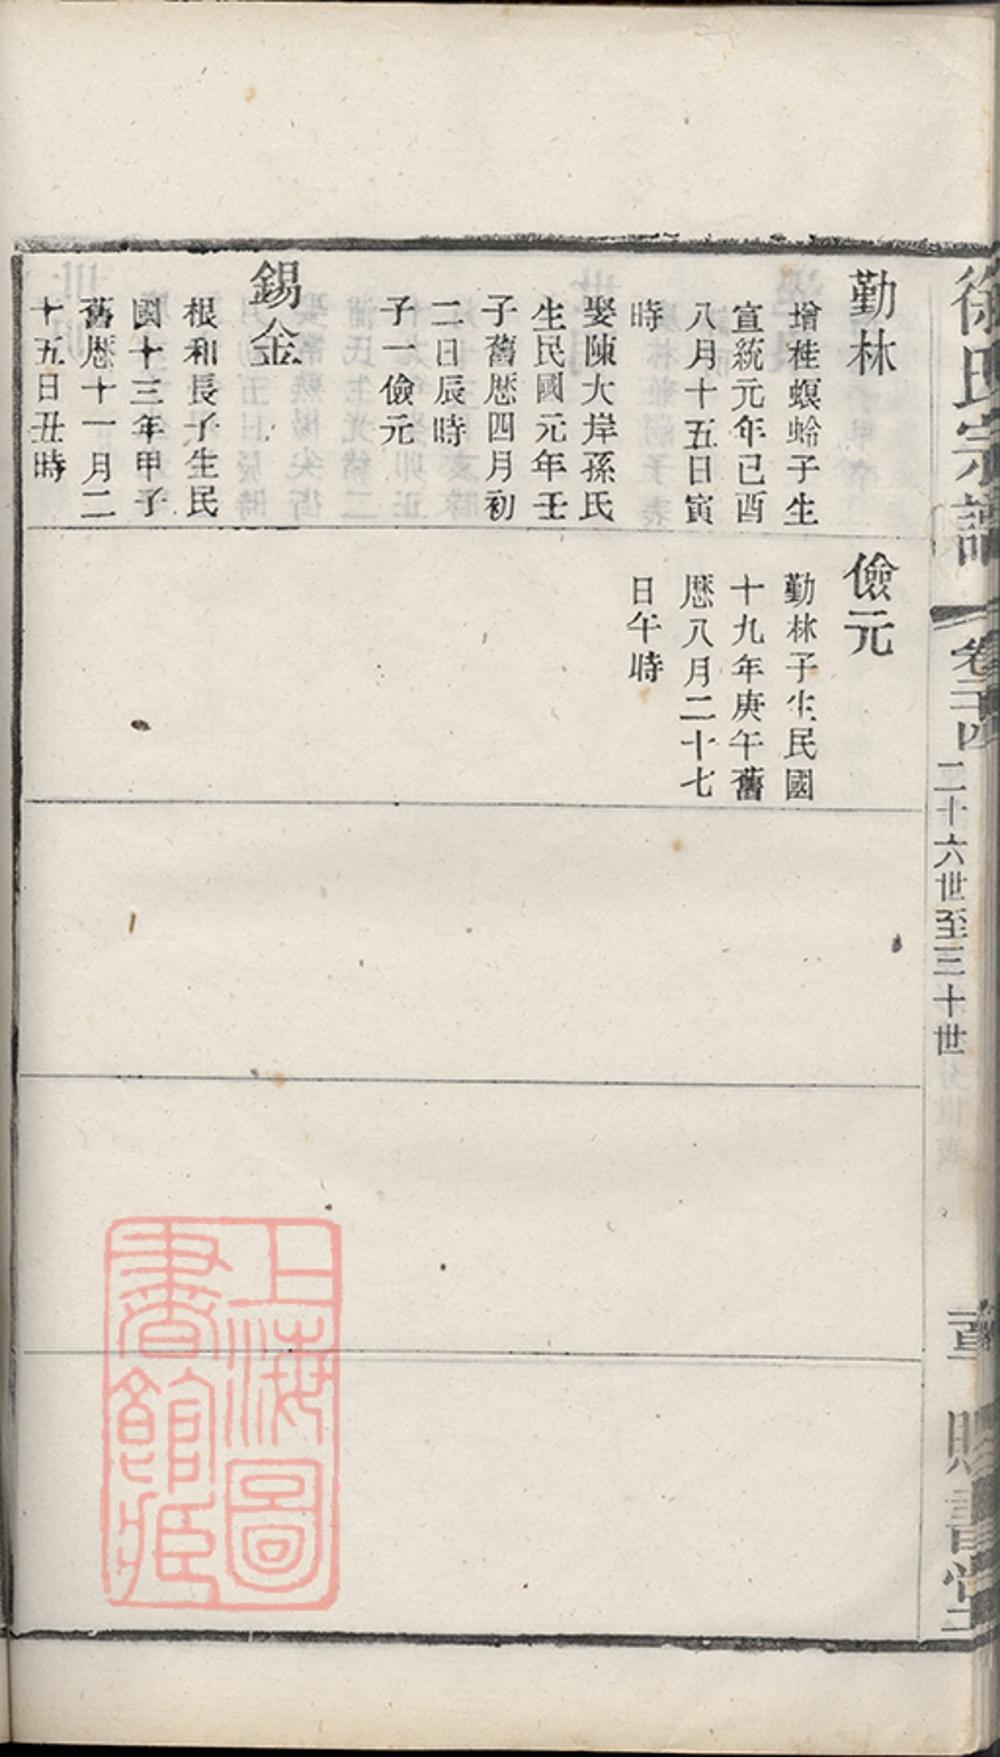 徐氏宗譜
卷三十四
二十六世至三十世
賜書堂
勤林
增桂螟蛉子生
宣統元年己酉
八月十五日寅
時
娶陳大岸孫氏
生民國元年壬
子舊厯四月初
二日辰時
子一儉元
錫金
根和長子生民
國十三年甲子
舊厯十一月二
十五日丑時
儉元
勤林子生民國
十九年庚午舊
厯八月二十七
日午時
上海圖
書館藏